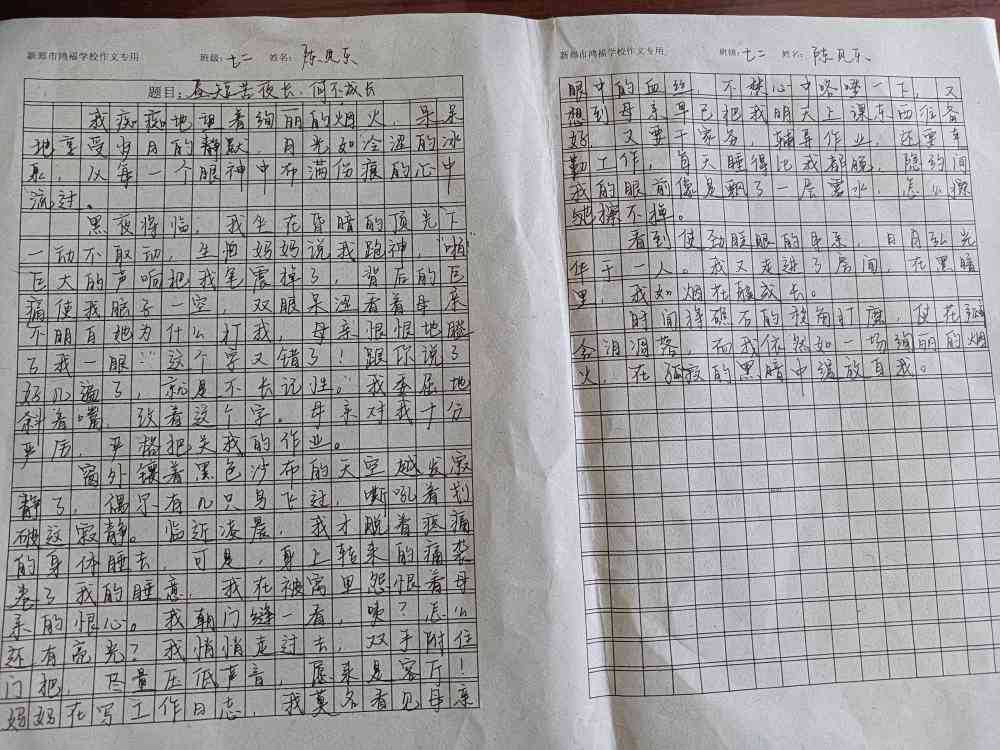 新郑市鸿福学校作文专用 班级：七二 姓名：陈见东
题目：昼短苦夜长，何不成长
我痴痴地望着绚丽的烟火，呆呆
地享受当月的静默，月光如冷涩的冰
泉，从每一个眼神中布满伤痕的心中
流过。
黑夜将临，我坐在昏暗的顶光下
一动不敢动，生怕妈妈说我跑神，“啪”
巨大的声响把我笔震掉了，背后的巨
痛使我脑子一空，双眼呆涩看着母亲
不明白她为什么打我，母亲恨恨地瞪
了我一眼：“这个字又错了！跟你说了
好几遍了，就是不长记性。”我委屈地
斜着嘴，改着这个字。母亲对我十分
严厉，严格把关我的作业。
窗外镶着黑色沙布的天空越发寂
静了，偶尔有几只鸟飞过，嘶吼着划
破这寂静。临近凌晨，我才脱着疼痛
的身体睡去，可是，身上转来的痛袭
卷了我的睡意，我在被窝里怨恨着母
亲的恨心。我朝门缝一看，咦？怎么
还有亮光？我悄悄走过去，双手附住
门把，尽量压低声音，愿来是客厅！
妈妈在写工作日志，我莫名看见母亲
新郑市鸿福学校作文专用 班级：七二 姓名：陈见东
眼中的血丝，不禁心中咯噔一下，又
想到母亲早已把我明天上课东西准备
好，又要干家务，辅导作业，还要辛
勤工作，每天睡得比我都晚，隐约间
我的眼前像是飘了一层雾水，怎么擦
也擦不掉。
看到使劲眨眼的母亲，日月弘光
华于一人。我又走进了房间，在黑暗
里，我如烟花在疑成长。
时间将礁石的棱角打磨，使花
会消凋落，而我依然如一场绚丽的烟
火，在孤寂的黑暗中绽放自我。